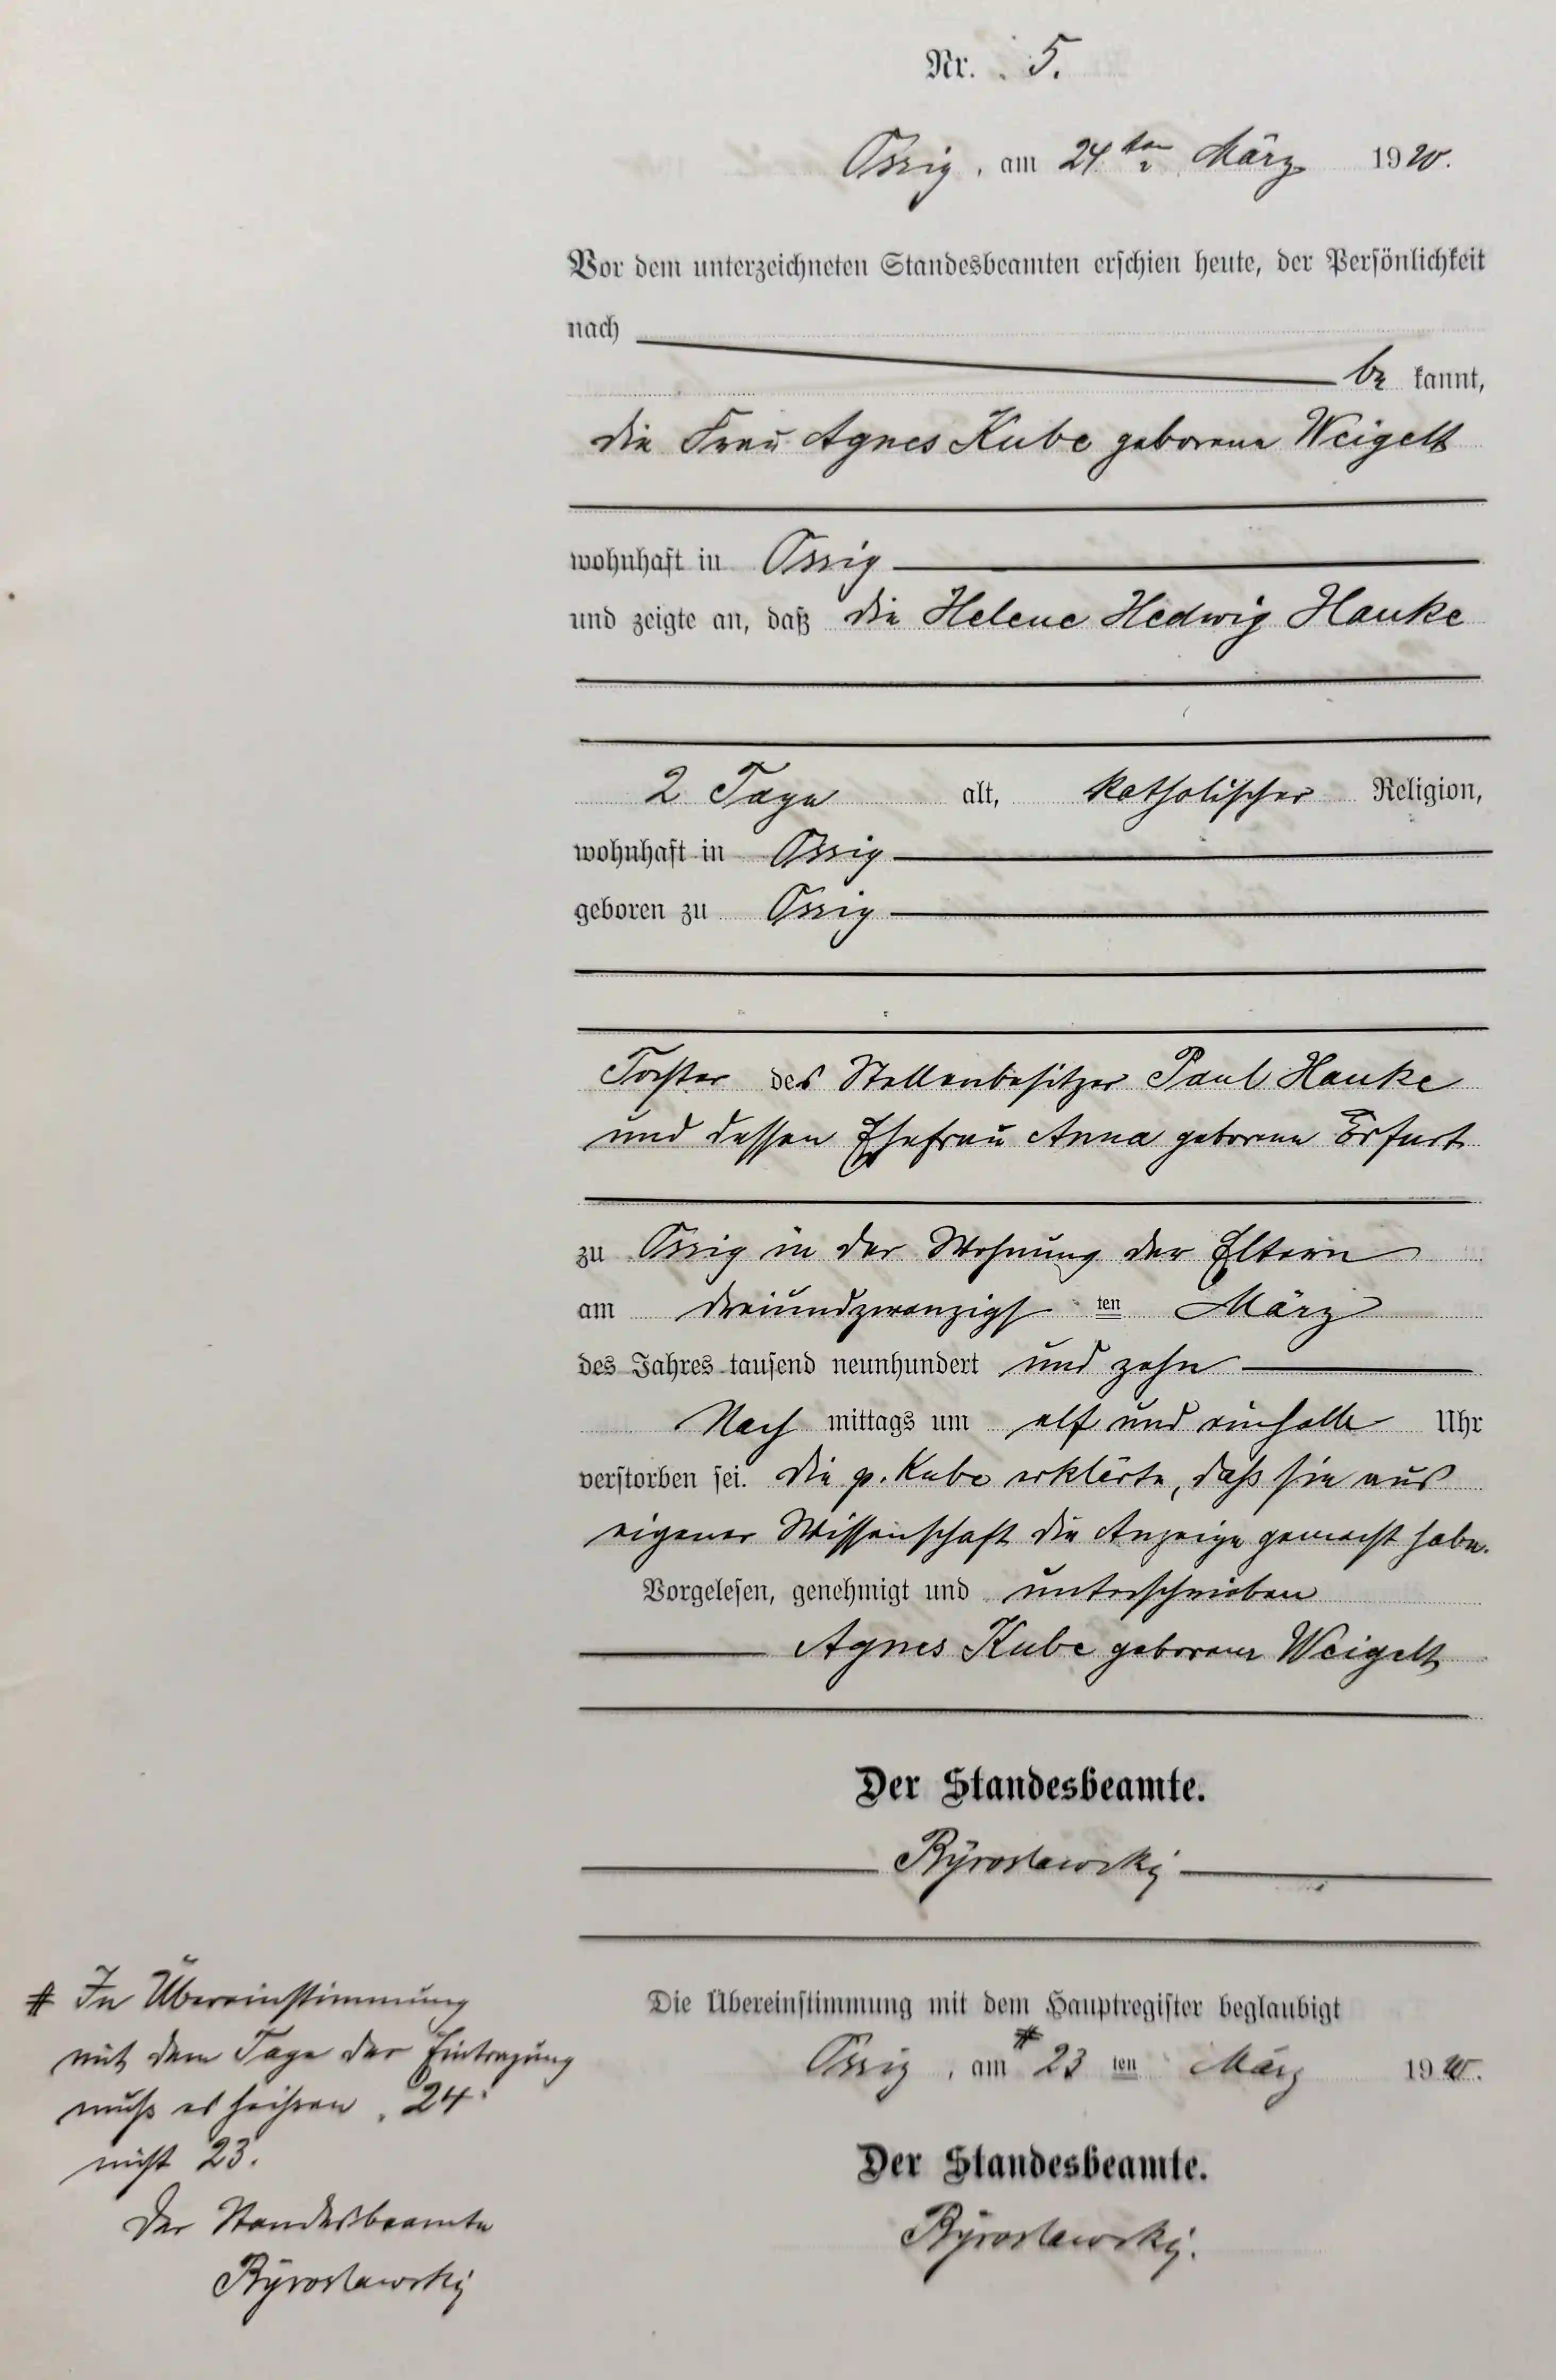 Nr. 5.
Ossig, am 24ten März 1910.
Vor dem unterzeichneten Standesbeamten erschien heute, der Persönlichkeit
nach
be kannt,
die Frau Agnes Kube geborene Weigelt
wohnhaft in Ossig
und zeigte an, daß die Helene Hedwig Hauke
2 Tage alt, katholischer Religion,
wohnhaft in Ossig
geboren zu Ossig
Tochter des Stellenbesitzer Paul Hauke
und dessen Ehefrau Anna geborene Erfurt
zu Ossig in der Wohnung der Eltern
am dreiundzwanzigsten März
des Jahres tausend neunhundert und zehn
Nachmittags um elf und einhalb Uhr
verstorben sei. Die p. Kube erklärte, daß sie aus
eigener Wissenschaft die Anzeige gemacht habe.
Vorgelesen, genehmigt und unterschrieben
Agnes Kube geborene Weigelt
Der Standesbeamte.
Die Übereinstimmung mit dem Hauptregister beglaubigt
Ossig, am # 23ten März 1910.
Der Standesbeamte.
# In Übereinstimmung
mit dem Tage der Eintragung
muß es heißen „24“
nicht 23.
Der Standesbeamte